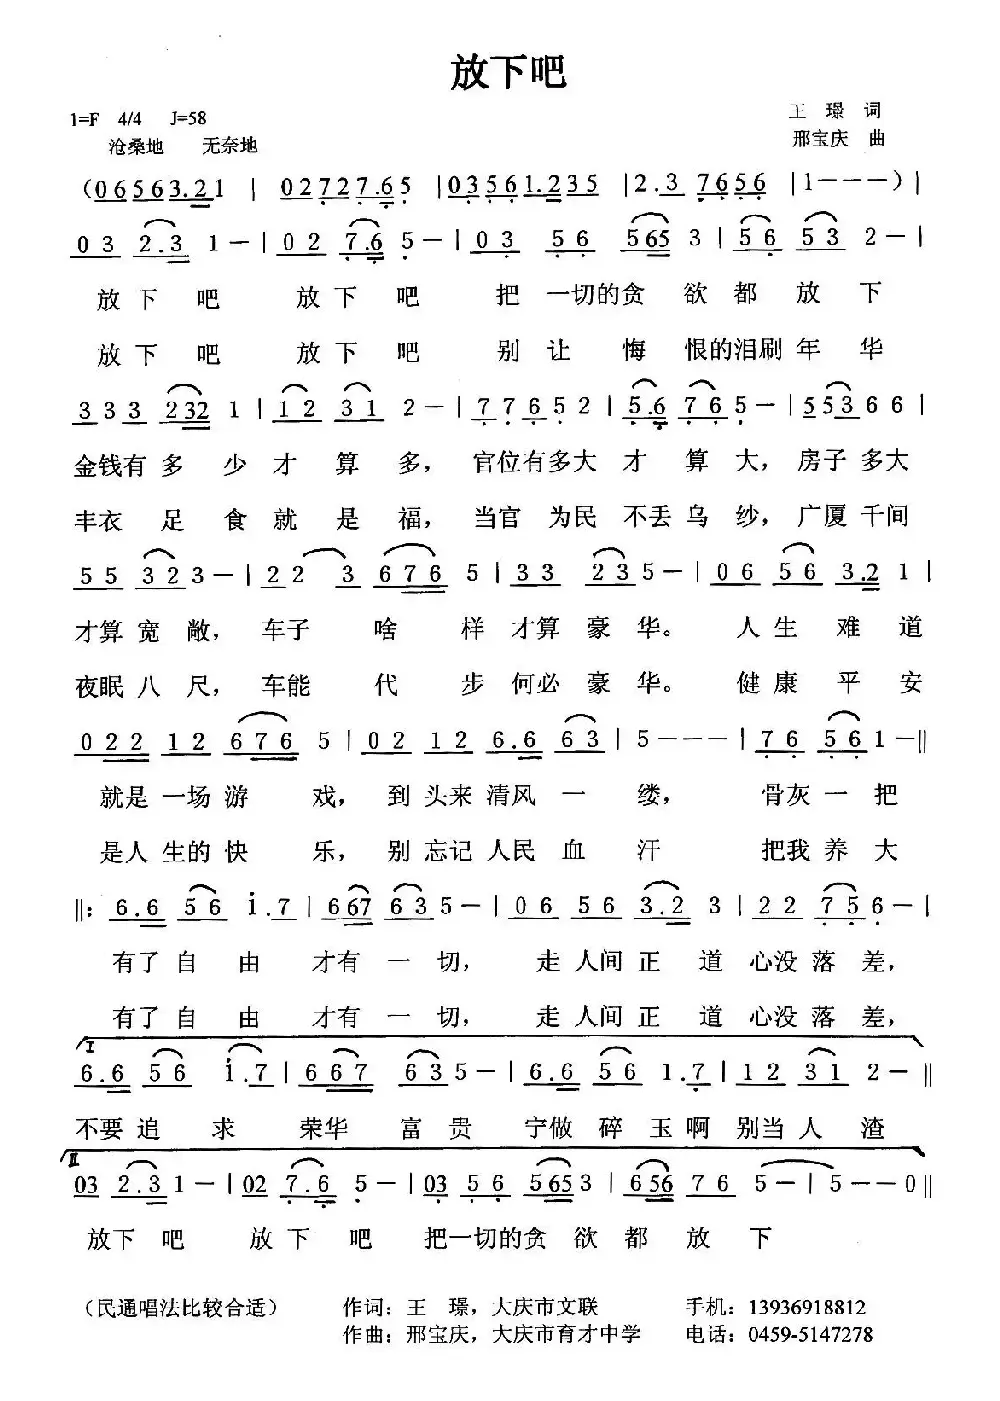 放下吧
1=F 4/4 J=58
王 璟 词
沧桑地 无奈地
邢宝庆 曲
(06563.21 | 02727.65 |03561.235 |2.3 7656 |1---)|
03 2.3 1-|02 7.6 5-|03 56 565 3|56 53 2-|
放下吧 放下吧 把一切的贪欲都放下
放下吧 放下吧 别让悔恨的泪刷年华
333 232 1|12 31 2-|77652|5.6 765-|55366|
金钱有多少才算多，官位有多大才算大，房子多大
丰衣足食就是福，当官为民不丢乌纱，广厦千间
55 323-|22 3 676 5|33 235-|06 56 3.2 1|
才算宽敞，车子啥样才算豪华。人生难道
夜眠八尺，车能代步何必豪华。健康平安
022 12 676 5|02 12 6.6 63|5---|76 561-||
就是一场游戏，到头来清风一缕，骨灰一把
是人生的快乐，别忘记人民血汗 把我养大
||: 6.6 56 i.7|667 635-|06 56 3.2 3|22 756-|
有了自由才有一切，走人间正道心没落差，
有了自由才有一切，走人间正道心没落差，
I
6.6 56 i.7|667 635-|6.6 56 1.7|12 31 2-||
不要追求荣华富贵 宁做碎玉啊别当人渣
II
03 2.31-|02 7.6 5-|03 56 5653|656 76 5-|5--0||
放下吧 放下吧 把一切的贪欲都放下
（民通唱法比较合适） 作词：王 璟，大庆市文联 手机：13936918812
作曲：邢宝庆，大庆市育才中学 电话：0459-5147278